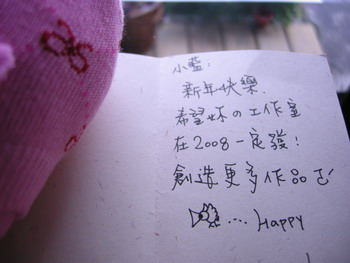 小藍:
新年快樂.
希望妳の工作室
在2008一定發!
創造更多作品ㄛ!
.... Happy